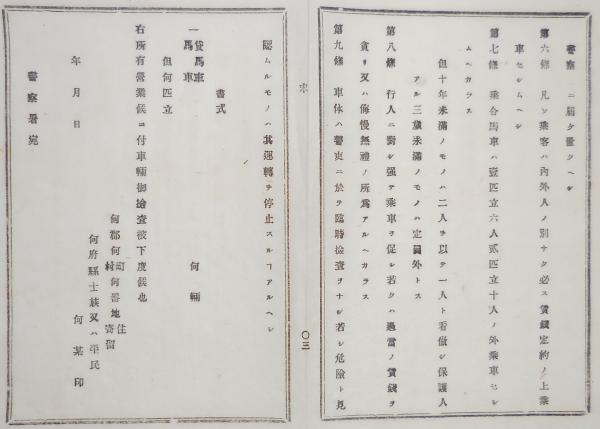 警察ニ届ケ置クヘシ
第六條 凡ソ乘客ハ內外人ノ別ナク必ス賃錢定約ノ上乘
車セシムヘシ
第七條 乘合馬車ハ壹匹立六人貳匹立十人ノ外乘車セシ
ムヘカラス
但十年未滿ノモノハ二人ヲ以テ一人ト看做シ保護人
アル三歲未滿ノモノハ定員外トス
第八條 行人ニ對シ强テ乘車ヲ促シ若クハ過當ノ賃錢ヲ
貪リ又ハ侮慢無禮ノ所爲アルヘカラス
第九條 車体ハ警吏ニ於テ臨時撿查ヲナシ若シ危險ト見
〇三
認ムルモノハ其運轉ヲ停止スルヿアルヘシ
書式
一貸馬車 何輛
馬車
但何匹立
右所有營業候ニ付車輛御撿查被下度候也
何郡何町村何番地住寄留
何府縣士族又ハ平民
何某印
年月日
警察署宛